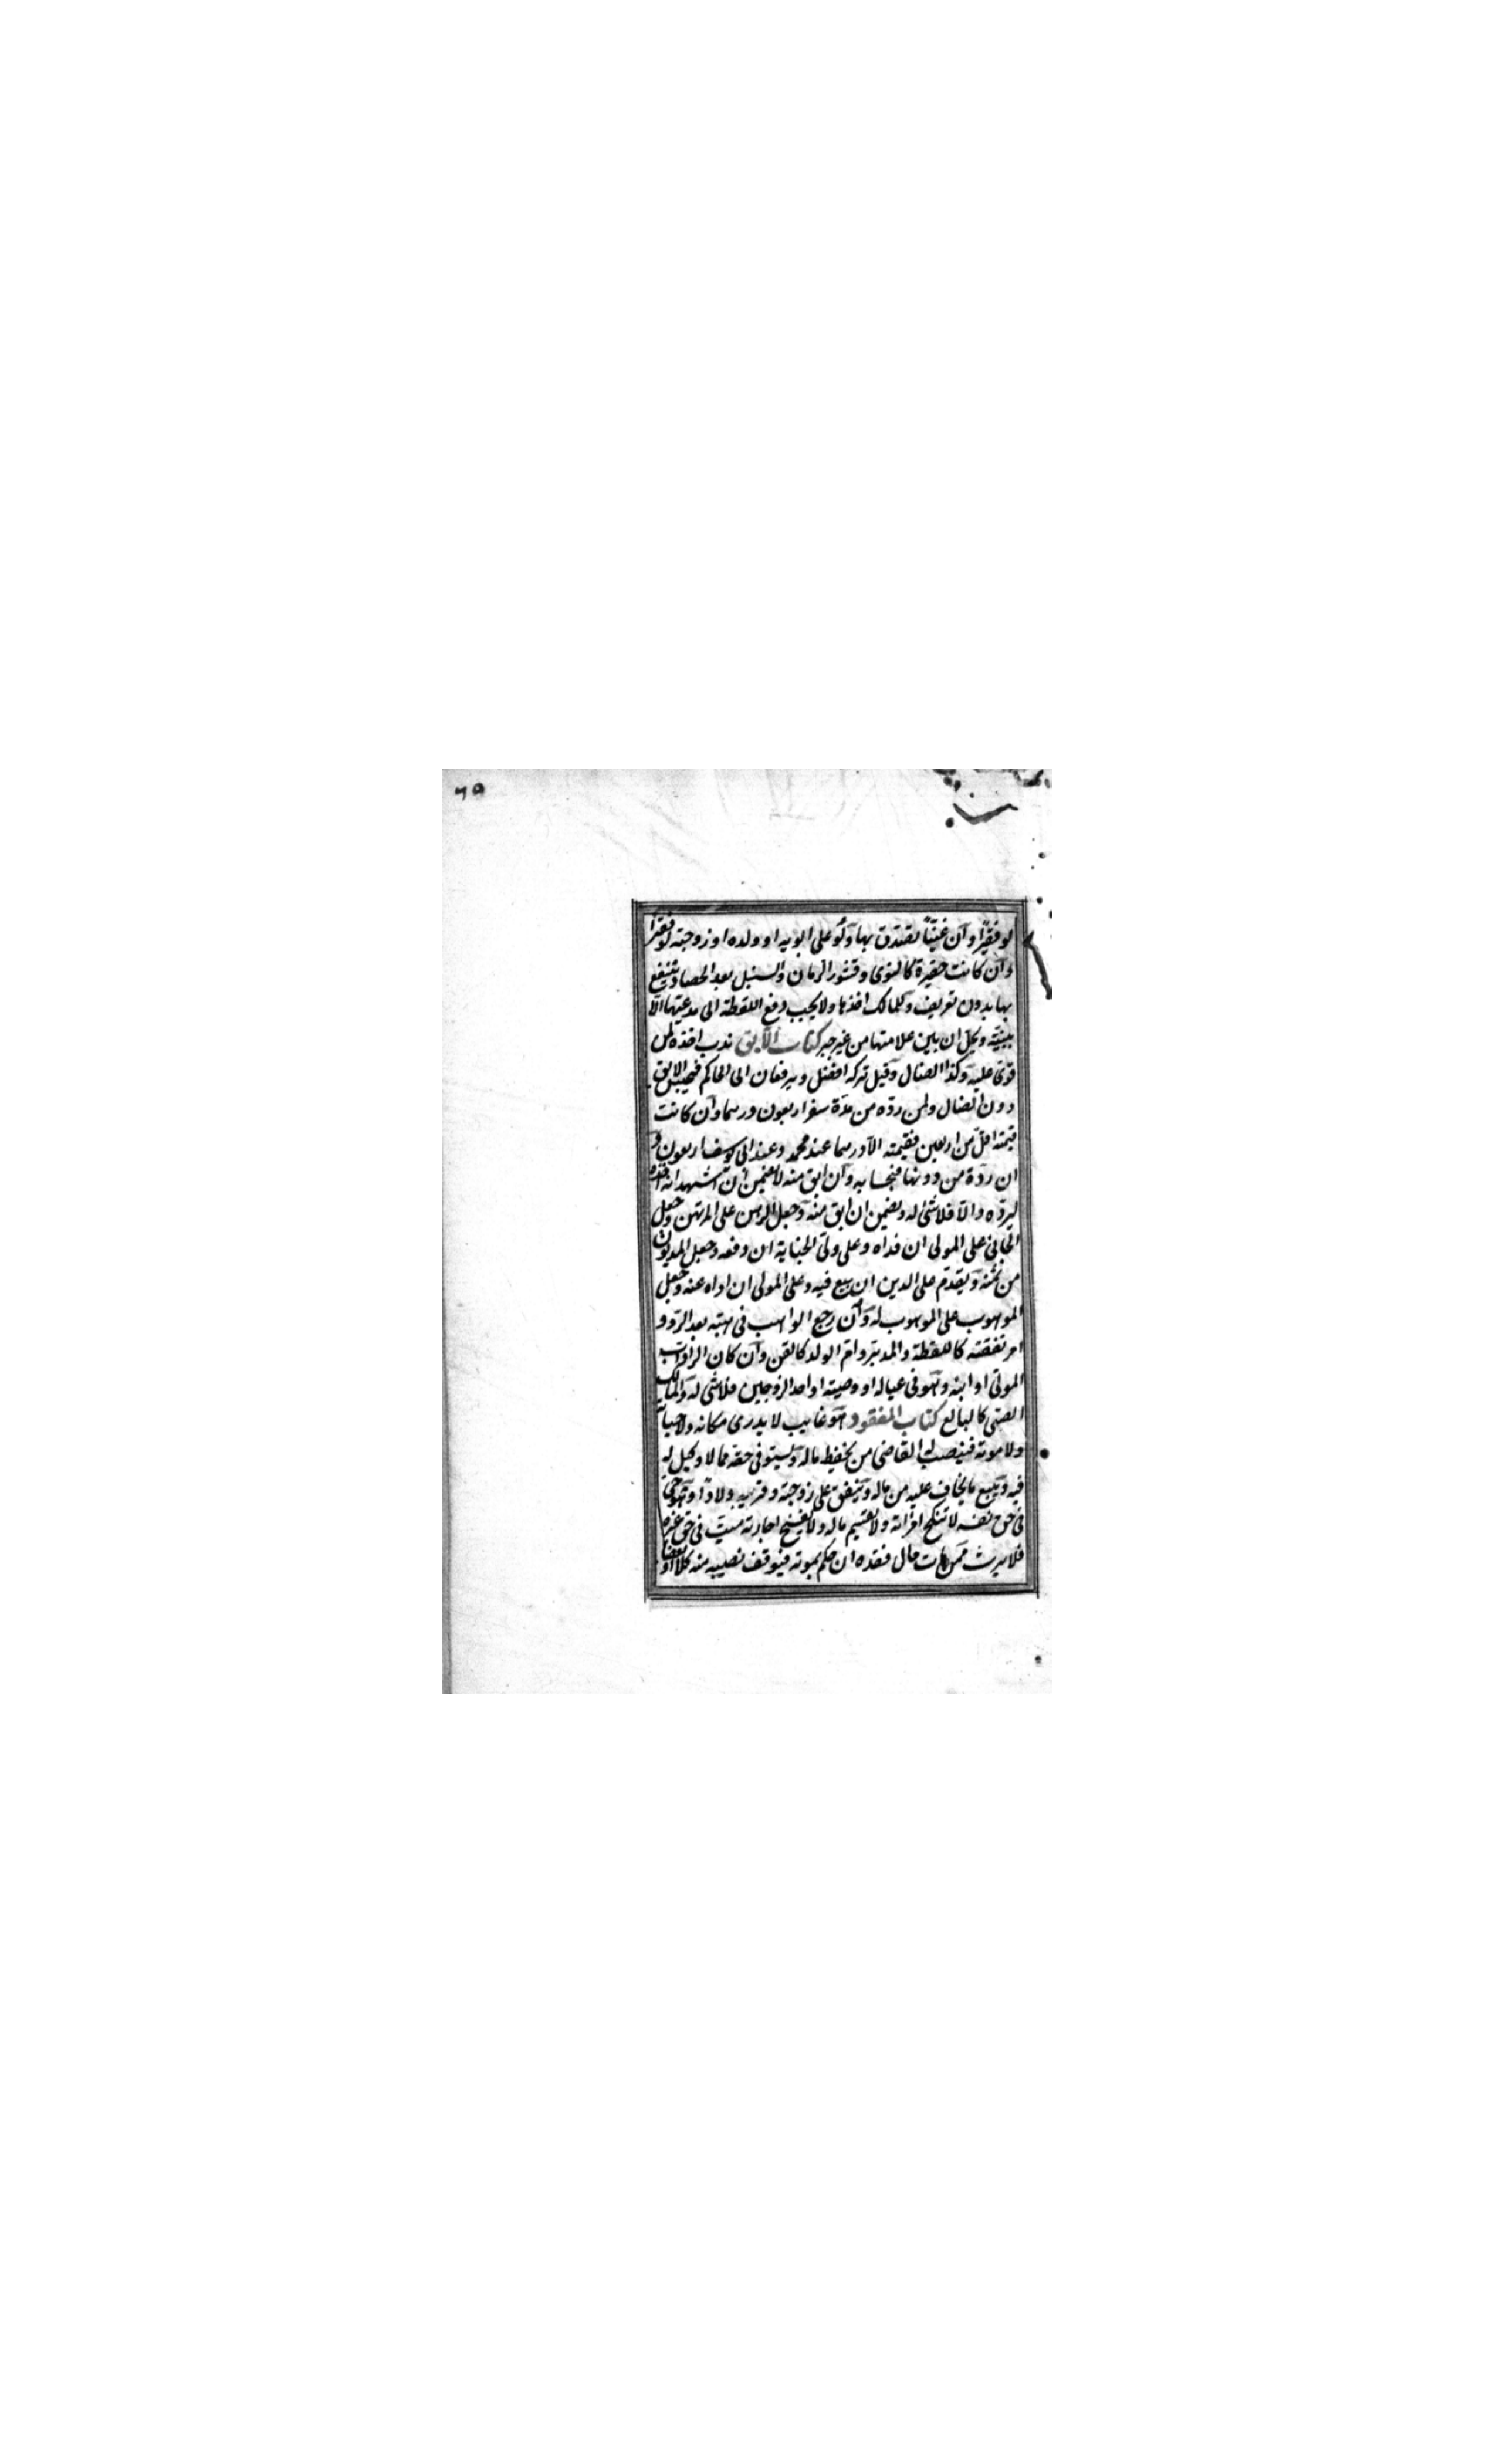 ٦٥
لو فقيرًا وان غنيًّا تصدّق بها ولو على ابويه او ولده او زوجته لو فقراء
وان كانت حقيرة كالنوى وقشور الرمان والسنبل بعد الحصاد ينتفع
بها بدون تعريف وللمالك اخذها ولا يجب دفع اللقطة الى مدعيها الّا
ببينة ويحلّ ان بين علامتها من غير جبر كتاب الآبق ندب اخذه لمن
قوى عليه وكذا الضال وقيل تركه افضل ويرفعان الى الحاكم فيحبس الابق
دون الضال ولمن ردّه من مدّة سفر اربعون درهما وان كانت
قيمته اقلّ من اربعين فقيمته الّا درهما عند محمد وعند ابى يوسف اربعون و
ان ردّه من دونها فبحسابه وان ابق منه لا يضمن ان اشهد انه اخذه
ليردّه والّا فلا شئ له ويضمن ان ابق منه وجعل الرهن على المرتهن وجعل
الجانى على المولى ان فداه وعلى ولىّ الجناية ان دفعه وجعل المديون
من ثمنه ويقدّم على الدين ان بيع فيه وعلى المولى ان اداه عنه وجعل
الموهوب على الموهوب له وان رجع الواهب فى هبته بعد الردّ و
امر نفقته كاللقطة والمدبّر وامّ الولد كالقن وان كان الراد اب
المولى او ابنه وهو فى عياله او وصيته او احد الزوجين فلا شئ له والمالك
الصبى كالبالغ كتاب المفقود هو غايب لا يدرى مكانه ولا حياته
ولا موته فينصب له القاضى من يحفظ ماله ويستوفى حقه مما لا وكيل له
فيه ويبيع ما يخاف عليه من ماله وينفق على زوجته وقريبه ولادًا وهو حىّ
فى حق نفسه لا تنكح امرأته ولا يقسم ماله ولا تفسخ اجارته ميّت فى حق غيره
فلا يرث ممن مات حال فقده ان حكم بموته فيوقف نصيبه منه كلا او بعضا